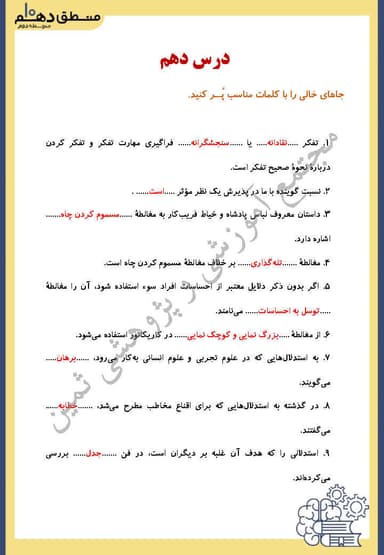 منطق دهم
متوسطه دوم
درس دهم
جاهای خالی را با کلمات مناسب پُــر کنید.
۱. تفکر .....نقادانه..... یا ......سنجشگرانه...... فراگیری مهارت تفکر و تفکر کردن
درباره نحوهٔ صحیح تفکر است.
۲. نسبت گوینده با ما در پذیرش یک نظر مؤثر .....است...... .
۳. داستان معروف لباس پادشاه و خیاط فریب‌کار به مغالطهٔ ......مسموم کردن چاه.......
اشاره دارد.
۴. مغالطهٔ .......تله‌گذاری...... بر خلاف مغالطهٔ مسموم کردن چاه است.
۵. اگر بدون ذکر دلایل معتبر از احساسات افراد سوء استفاده شود، آن را مغالطهٔ
.....توسل به احساسات...... می‌نامند.
۶. از مغالطهٔ .....بزرگ نمایی و کوچک نمایی...... در کاریکاتور استفاده می‌شود.
۷. به استدلال‌هایی که در علوم تجربی و علوم انسانی به‌کار می‌رود، ......برهان.....
می‌گویند.
۸. در گذشته به استدلال‌هایی که برای اقناع مخاطب مطرح می‌شد، .......خطابه......
می‌گفتند.
۹. استدلالی را که هدف آن غلبه بر دیگران است، در فن .......جدل...... بررسی
می‌کرده‌اند.
مجتمع آموزشی و پژوهشی ثمین